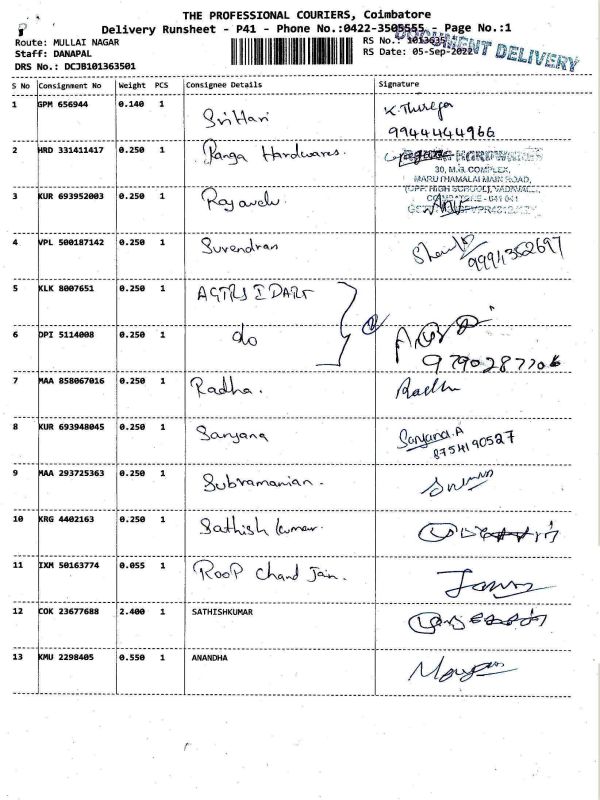 THE PROFESSIONAL COURIERS, Coimbatore
Delivery Runsheet - P41 - Phone No.:0422-3505555 - Page No.:1
Route: MULLAI NAGAR
RS No.: 1013635
DOCUMENT DELIVERY
Staff: DANAPAL
RS Date: 05-Sep-2022
DRS No.: DCJB101363501
S No Consignment No Weight PCS Consignee Details Signature
1 GPM 656944 0.140 1 SriHari
9944444966
2 HRD 331411417 0.250 1 Ranga Hardwares.
30, M.G. COMPLEX,
MARUTHAMALAI MAIN ROAD,
(OPP. HIGH SCHOOL), VADAVALLI,
COIMBATORE - 641 041
3 KUR 693952003 0.250 1
4 VPL 500187142 0.250 1 Surendran
9994352697
5 KLK 8007651 0.250 1
6 DPI 5114008 0.250 1 do
9790287706
7 MAA 858067016 0.250 1 Radha. Radha
8 KUR 693948045 0.250 1 Sanjana Sanjana.A
8754190527
9 MAA 293725363 0.250 1 Subramanian.
10 KRG 4402163 0.250 1 Sathish kumar.
11 IXM 50163774 0.055 1 Roop chand Jain.
12 COK 23677688 2.400 1 SATHISHKUMAR
13 KMU 2298405 0.550 1 ANANDHA